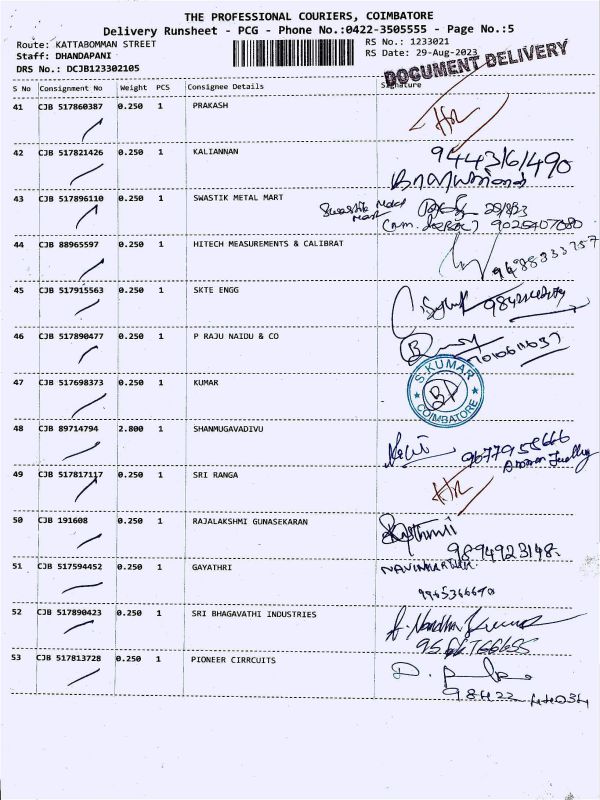 THE PROFESSIONAL COURIERS, COIMBATORE
Delivery Runsheet - PCG - Phone No.:0422-3505555 - Page No.:5
Route: KATTABOMMAN STREET
RS No.: 1233021
Staff: DHANDAPANI
RS Date: 29-Aug-2023
DRS No.: DCJB123302105
DOCUMENT DELIVERY
S No Consignment No Weight PCS Consignee Details Signature
41 CJB 517860387 0.250 1 PRAKASH
42 CJB 517821426 0.250 1 KALIANNAN
43 CJB 517896110 0.250 1 SWASTIK METAL MART Swastik Metal Mart 29/8/23
9025407080
44 CJB 88965597 0.250 1 HITECH MEASUREMENTS & CALIBRAT
45 CJB 517915563 0.250 1 SKTE ENGG
46 CJB 517890477 0.250 1 P RAJU NAIDU & CO
47 CJB 517698373 0.250 1 KUMAR S-KUMAR COIMBATORE
48 CJB 89714794 2.800 1 SHANMUGAVADIVU 9677958666
49 CJB 517817117 0.250 1 SRI RANGA
50 CJB 191608 0.250 1 RAJALAKSHMI GUNASEKARAN
9894923148
51 CJB 517594452 0.250 1 GAYATHRI
52 CJB 517890423 0.250 1 SRI BHAGAVATHI INDUSTRIES
53 CJB 517813728 0.250 1 PIONEER CIRRCUITS